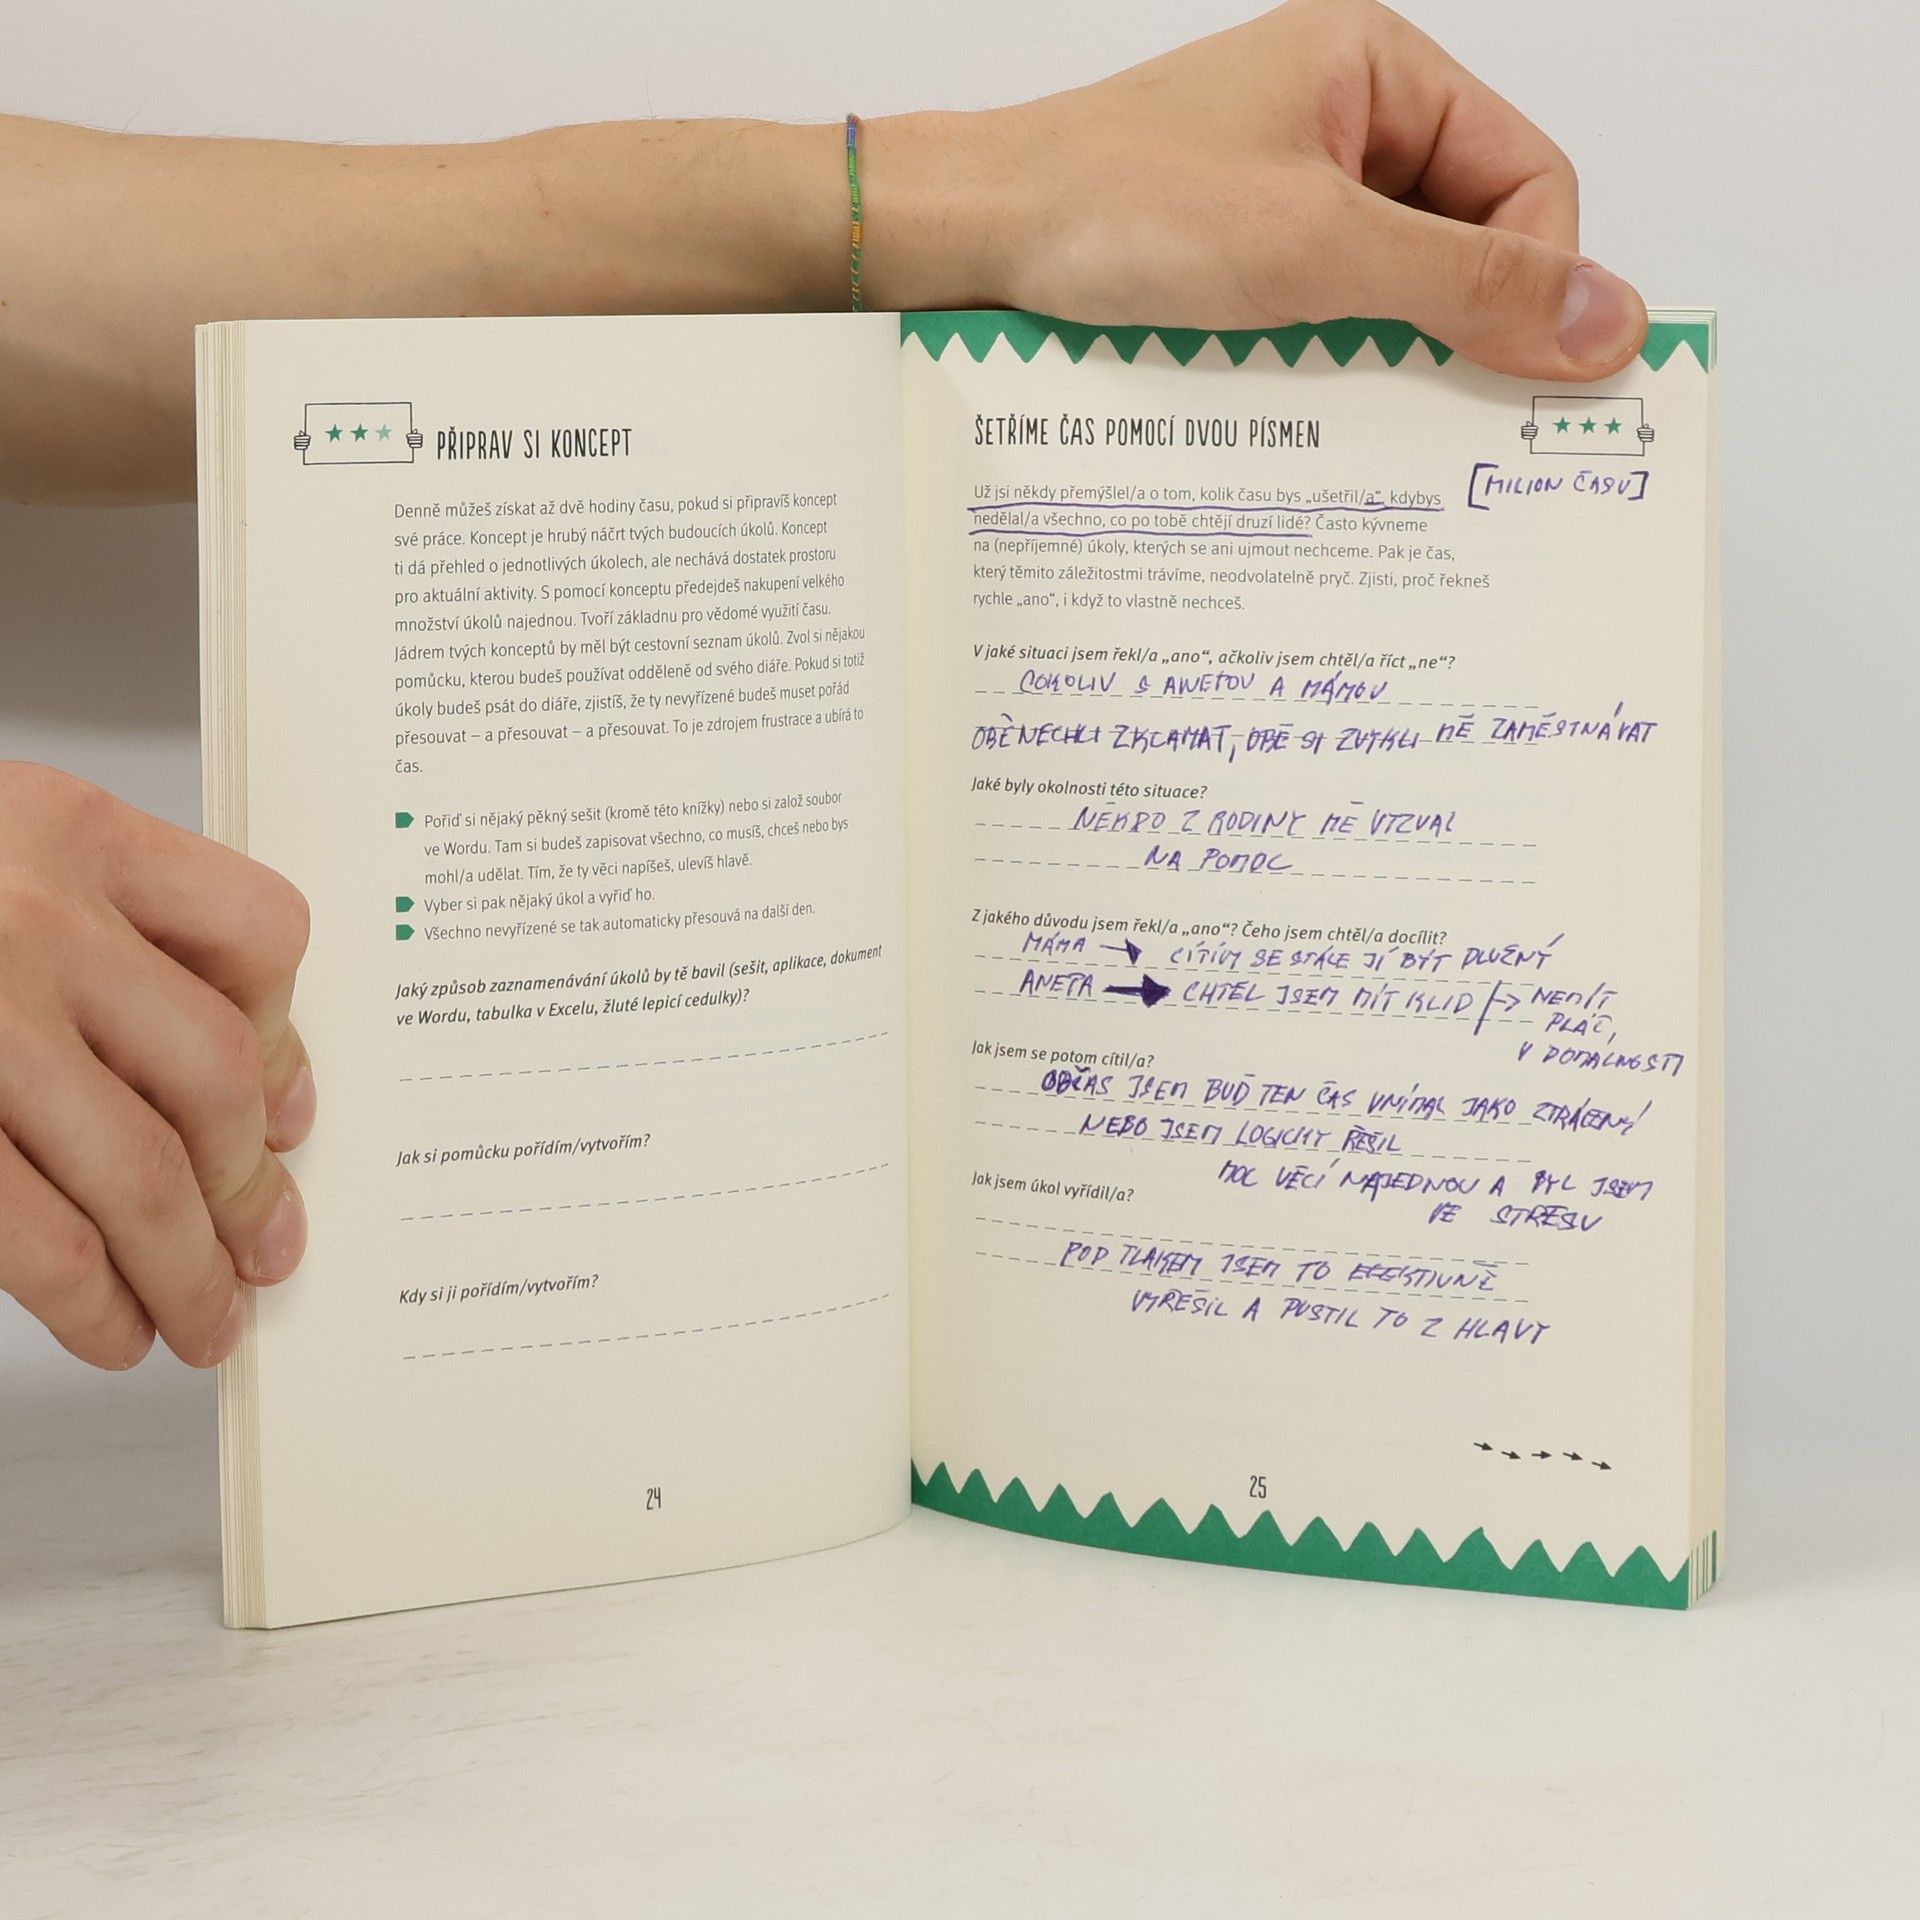 PŘIPRAV SI KONCEPT
Denně můžeš získat až dvě hodiny času, pokud si připravíš koncept
své práce. Koncept je hrubý náčrt tvých budoucích úkolů. Koncept
ti dá přehled o jednotlivých úkolech, ale nechává dostatek prostoru
pro aktuální aktivity. S pomocí konceptu předejdeš nakupení velkého
množství úkolů najednou. Tvoří základnu pro vědomé využití času.
Jádrem tvých konceptů by měl být cestovní seznam úkolů. Zvol si nějakou
pomůcku, kterou budeš používat odděleně od svého diáře. Pokud si totiž
úkoly budeš psát do diáře, zjistíš, že ty nevyřízené budeš muset pořád
přesouvat – a přesouvat – a přesouvat. To je zdrojem frustrace a ubírá to
čas.
Pořiď si nějaký pěkný sešit (kromě této knížky) nebo si založ soubor
ve Wordu. Tam si budeš zapisovat všechno, co musíš, chceš nebo bys
mohl/a udělat. Tím, že ty věci napíšeš, ulevíš hlavě.
Vyber si pak nějaký úkol a vyřiď ho.
Všechno nevyřízené se tak automaticky přesouvá na další den.
Jaký způsob zaznamenávání úkolů by tě bavil (sešit, aplikace, dokument
ve Wordu, tabulka v Excelu, žluté lepicí cedulky)?
Jak si pomůcku pořídím/vytvořím?
Kdy si ji pořídím/vytvořím?
24
ŠETŘÍME ČAS POMOCÍ DVOU PÍSMEN
[MILION ČASU]
Už jsi někdy přemýšlel/a o tom, kolik času bys „ušetřil/a“, kdybys
nedělal/a všechno, co po tobě chtějí druzí lidé? Často kývneme
na (nepříjemné) úkoly, kterých se ani ujmout nechceme. Pak je čas,
který těmito záležitostmi trávíme, neodvolatelně pryč. Zjisti, proč řekneš
rychle „ano“, i když to vlastně nechceš.
V jaké situaci jsem řekl/a „ano“, ačkoliv jsem chtěl/a říct „ne“?
COKOLIV S ANETOU A MÁMOU
OBĚ NECHCI ZKLAMAT, OBĚ SI ZVYKLI MĚ ZAMĚSTNÁVAT
Jaké byly okolnosti této situace?
NĚKDO Z RODINY MĚ VYZVAL
NA POMOC
Z jakého důvodu jsem řekl/a „ano“? Čeho jsem chtěl/a docílit?
MÁMA → CÍTÍM SE STÁLE JÍ BÝT DLUŽNÝ
ANETA → CHTĚL JSEM MÍT KLID → NEMÍT
PLÁČ,
V DOMÁCNOSTI
Jak jsem se potom cítil/a?
OBČAS JSEM BUĎ TEN ČAS VNÍMAL JAKO ZTRÁCENÝ
NEBO JSEM LOGICKY ŘEŠIL
MOC VĚCÍ NAJEDNOU A BYL JSEM
VE STRESU
Jak jsem úkol vyřídil/a?
POD TLAKEM JSEM TO EFEKTIVNĚ
VYŘEŠIL A PUSTIL TO Z HLAVY
25